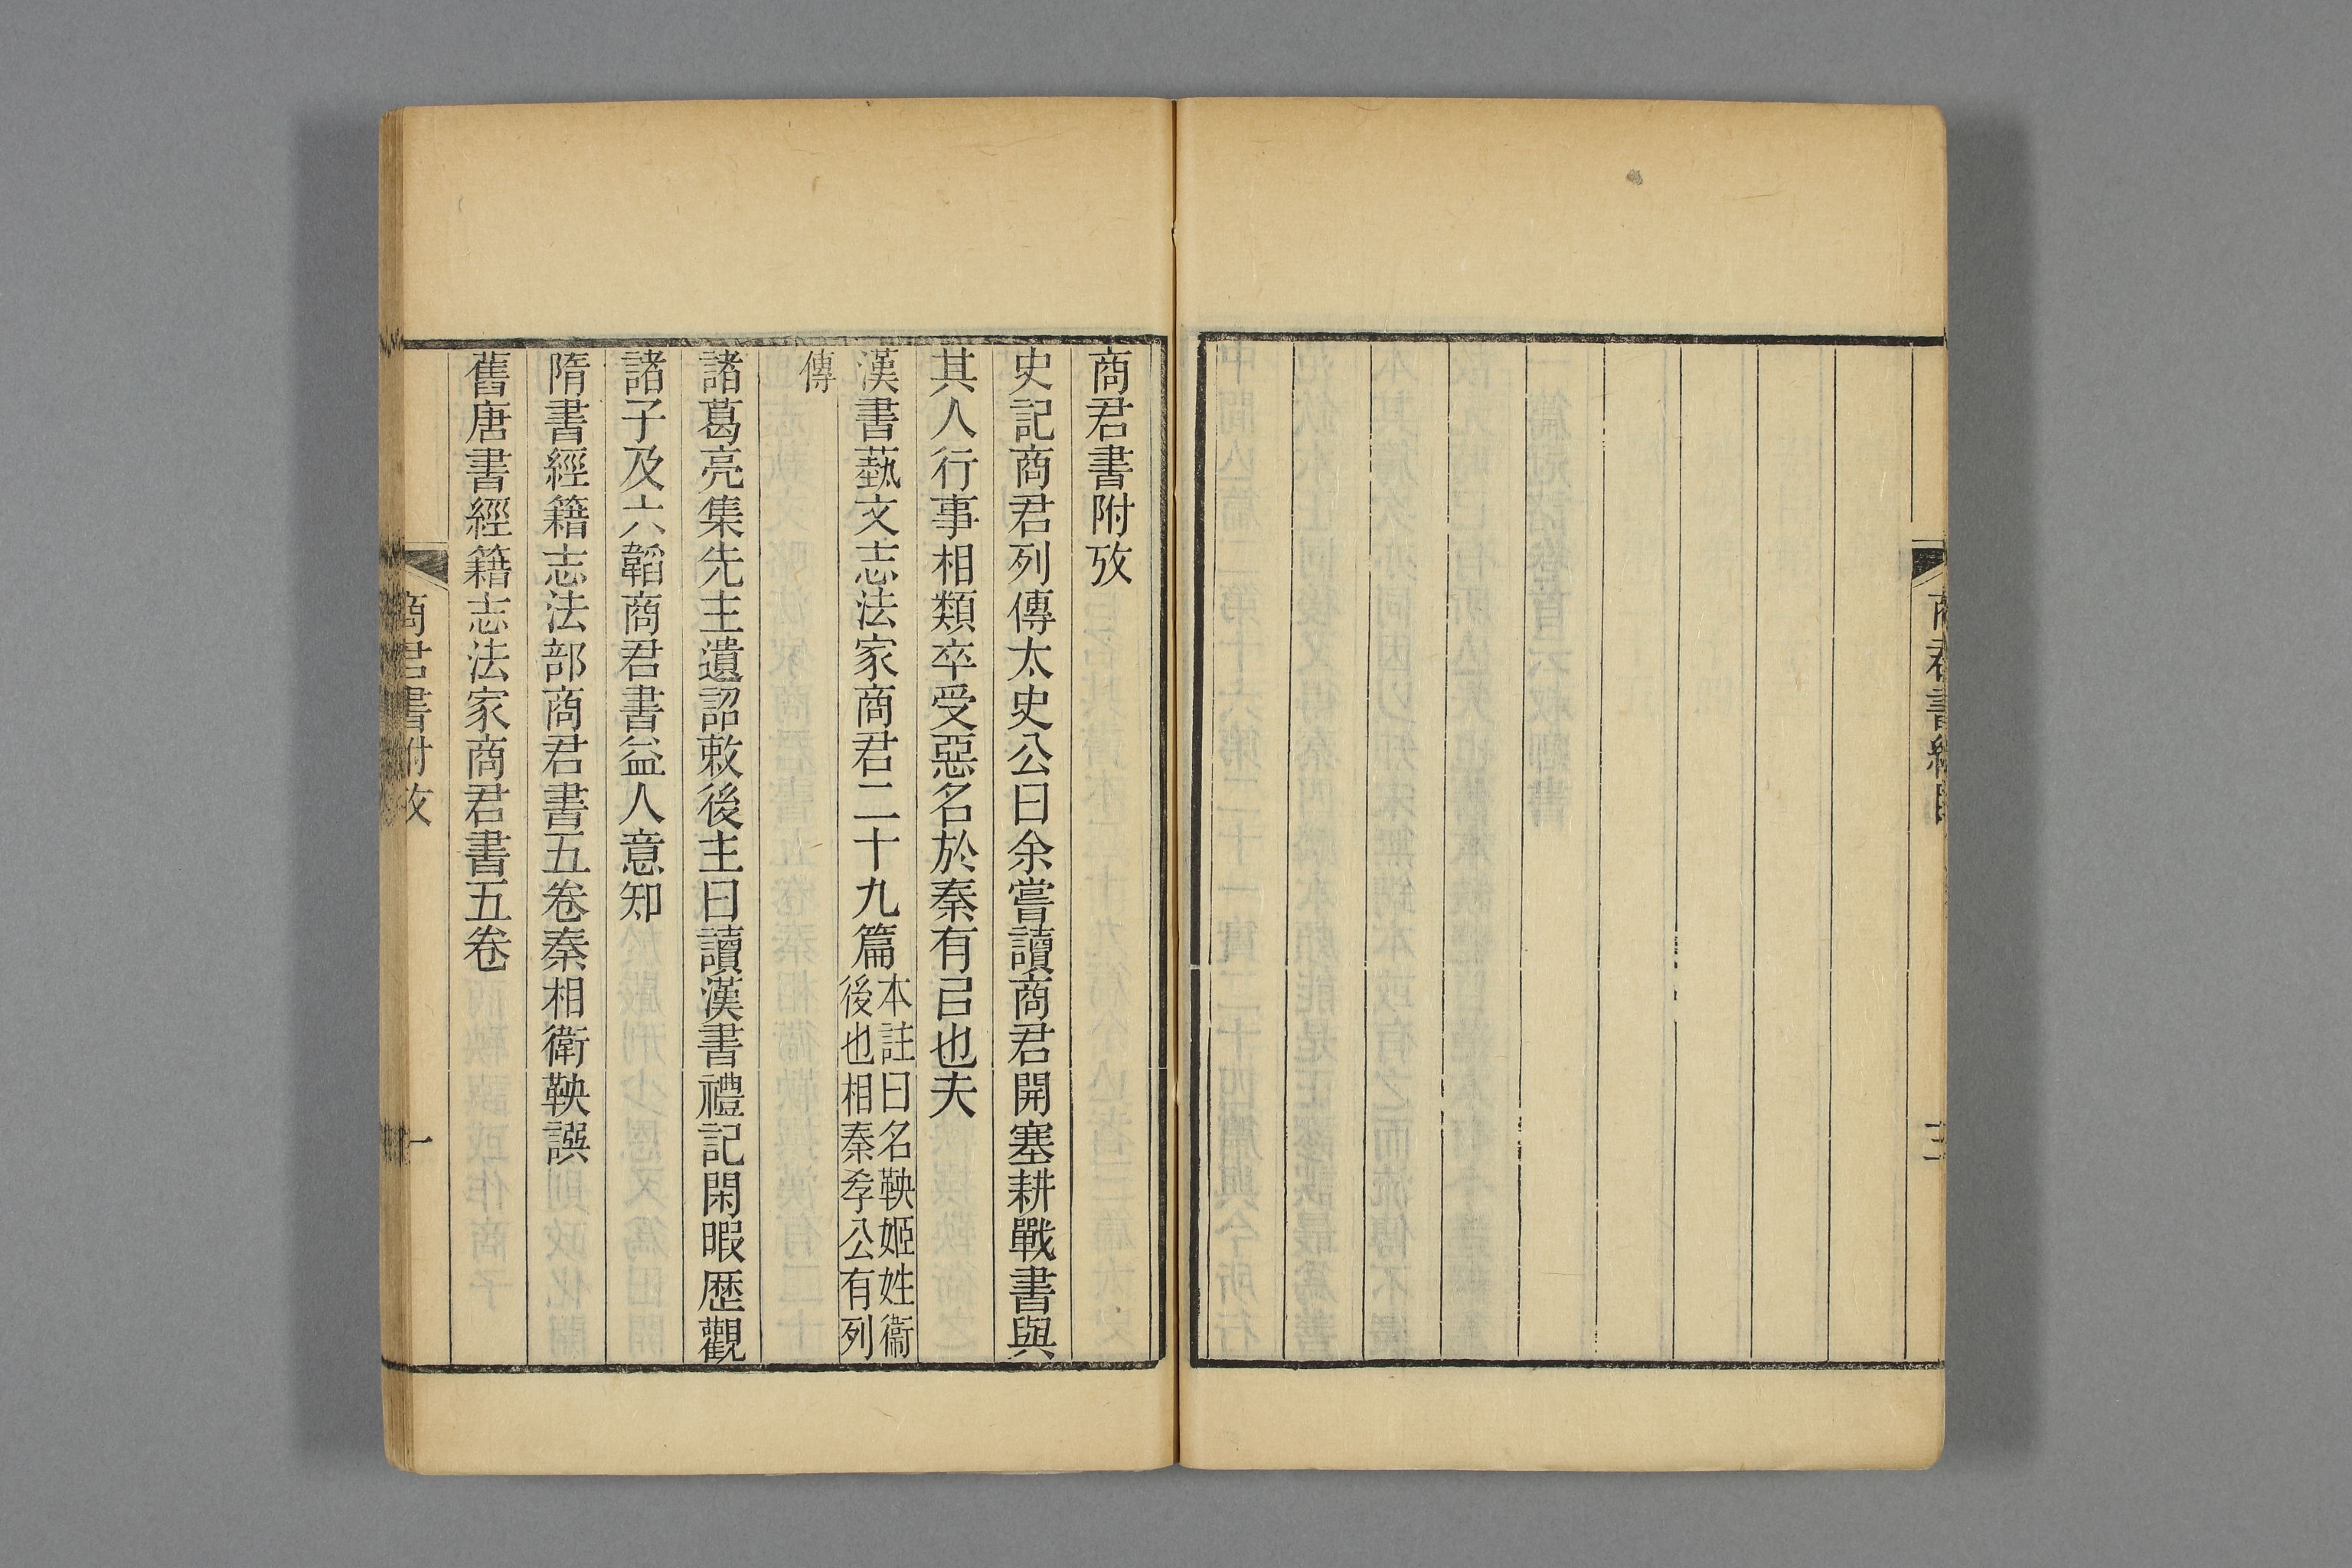 商君書
三
商君書附攷
史記商君列傳太史公曰余嘗讀商君開塞耕戰書與
其人行事相類卒受惡名於秦有已也夫
漢書藝文志法家商君二十九篇本註曰名鞅姬姓衞
後也相秦孝公有列
傳
諸葛亮集先主遺詔敕後主曰讀漢書禮記閑暇歷觀
諸子及六韜商君書益人意知
隋書經籍志法部商君書五卷秦相衛鞅譔
舊唐書經籍志法家商君書五卷
商君書附攷
一